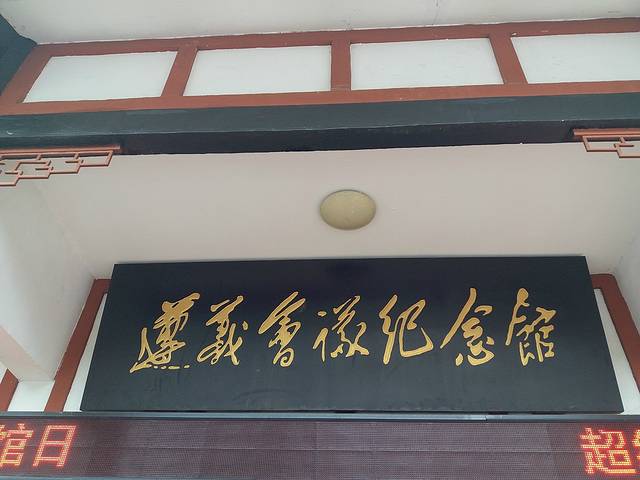 遵義會議紀念館
馆日 超